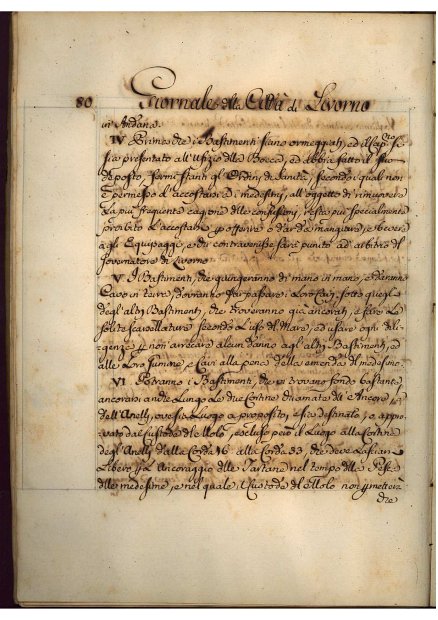 80 Giornale della Città di Livorno
in Andana.
IV Prima che i Bastimenti siano ormeggiati, ed il Cap.no si
sia presentato all'Ufizio della Bocca, ed abbia fatto il suo
deposto, fermi stanti gl'Ordini di Sanità, secondo i quali non
è permesso d'accostarsi ai medesimi, all'oggetto di rimuovere
la più frequente cagione delle confusioni, resta più specialmente
proibito l'accostarsi p offerire o dar da mangiare, e bevere
agli Equipaggi, e chi contravenisse sarà punito ad arbitrio del
Governatore di Livorno.
V. I Bastimenti, che giungeranno di mano in mano, e daranno
Cavo in terra, dovranno far passare i Loro Cavi sotto quegli
degl'altri Bastimenti, che troveranno già ancorati, e fare la
solita scavallatura secondo l'uso del Mare, ed usare ogni dili-
genza p non arrecare alcun danno agl'altri Bastimenti, ed
alle Loro Gumine, e Cavi alla pena della amenda del medesimo.
VI Potranno i Bastimenti, che vi trovano fondo bastante,
ancorarsi anche Lungo le due Cortine chiamate di Ancora, e
dell'Anelli, ove sia Luogo a proposito, e sia destinato, o appro-
vato dal Custode del Molo, escluso però il Luogo alla Cortina
degl'Anelli dalla Corda 16 alla Corda 33, che deve Lasciarsi
Libero p L'Ancoraggio delle Tartane nel tempo delle Pesche
delle medesime, e nel quale il Custode del Molo non permetterà
che